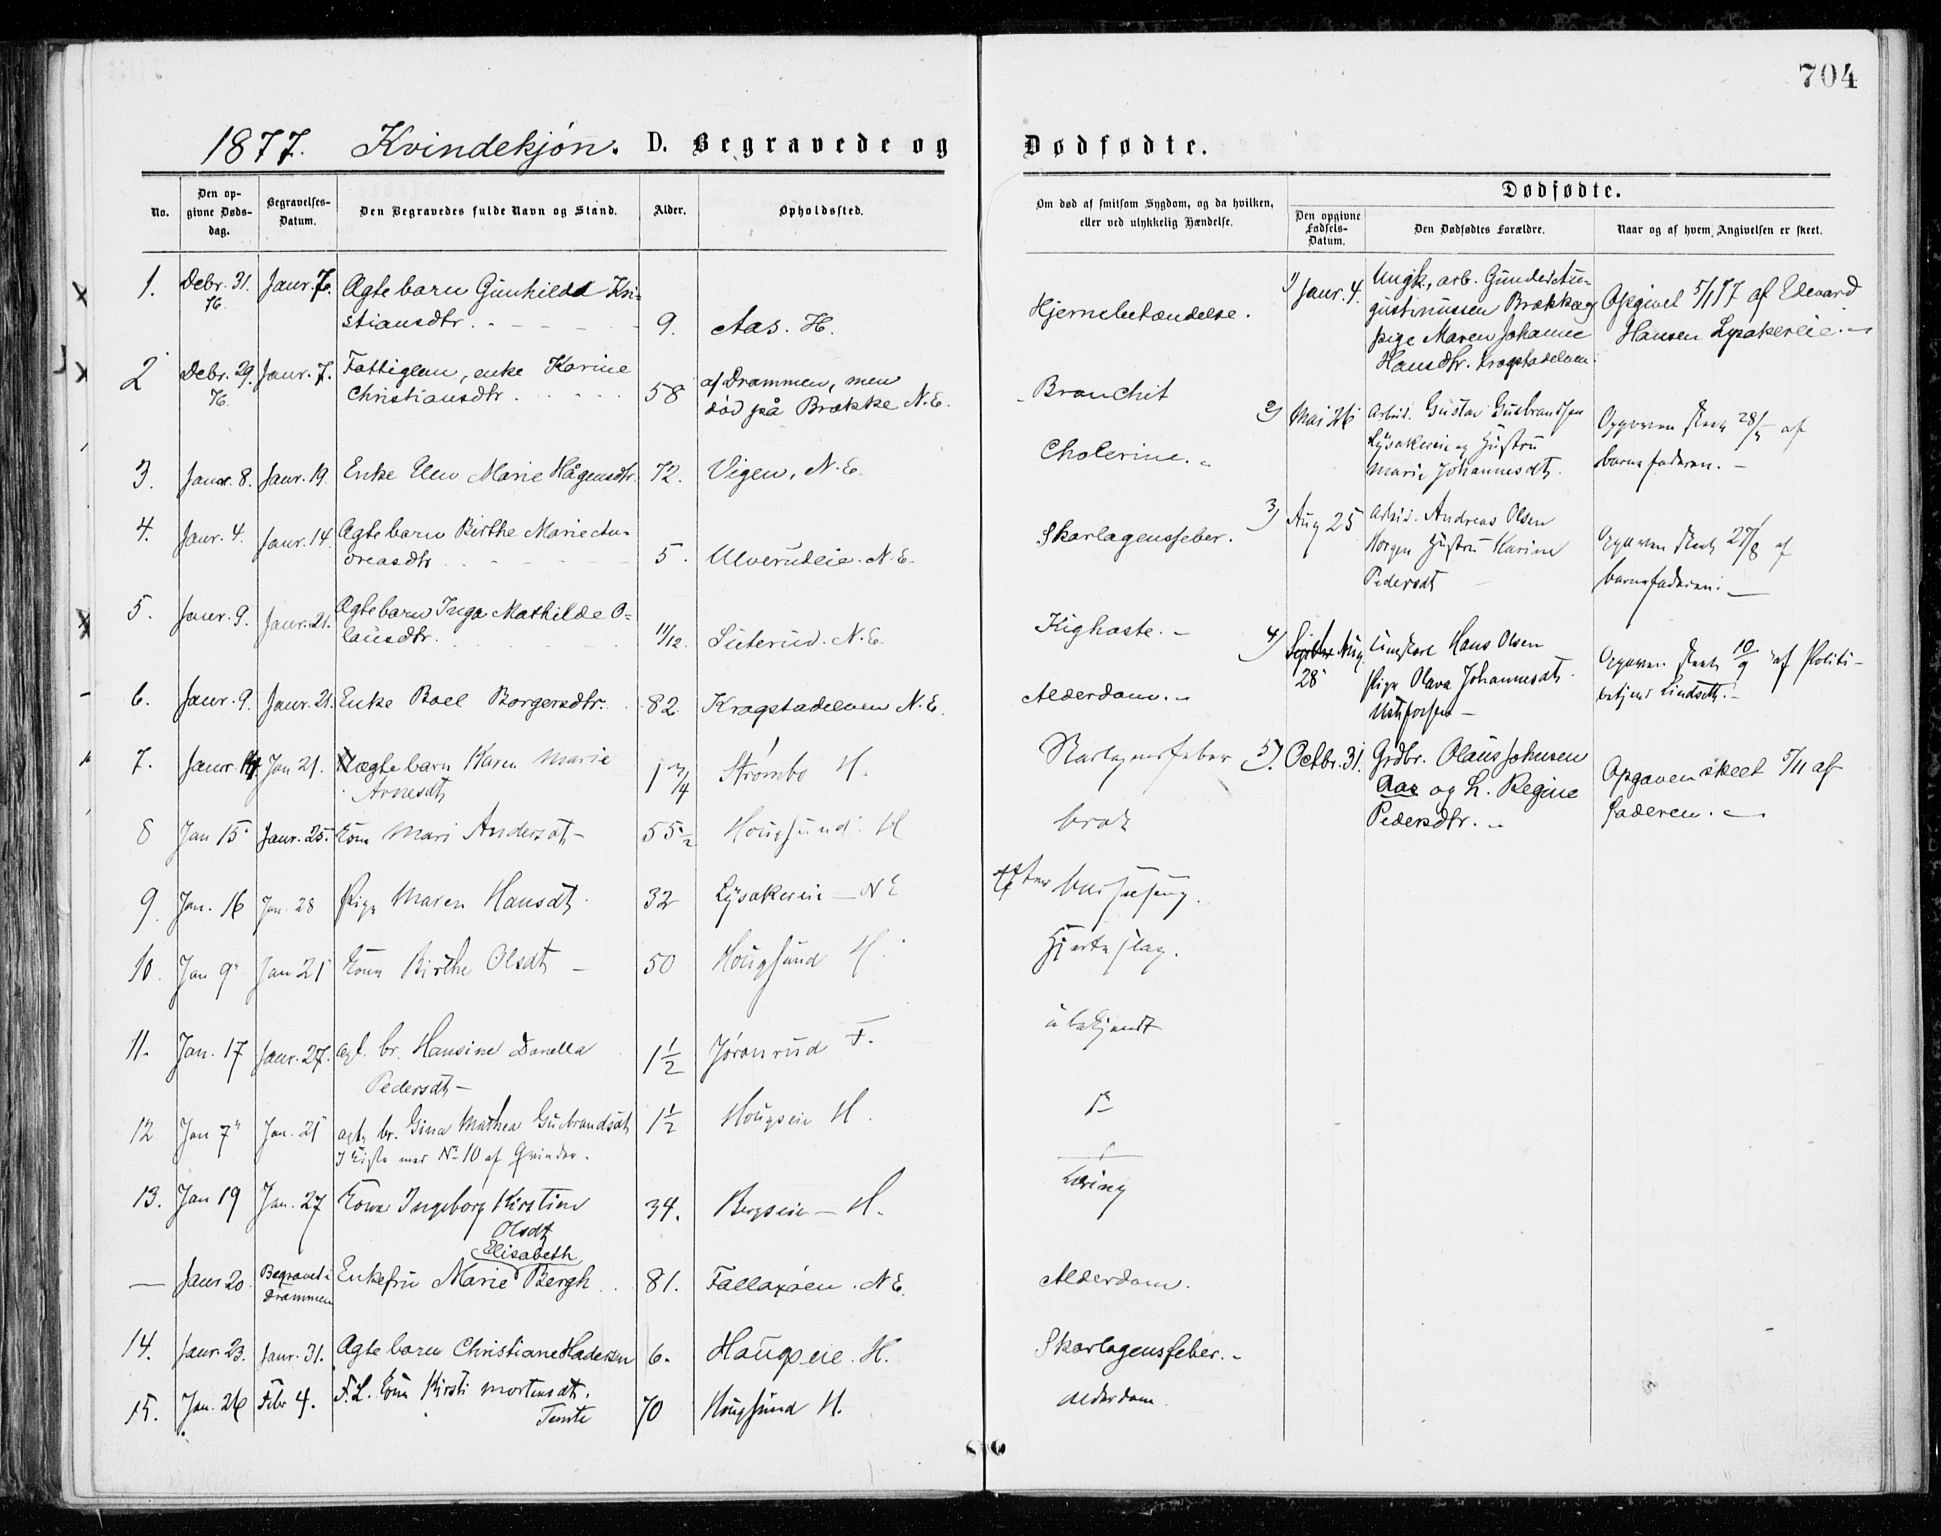 704
1877. Kvindekjøn. D. Begravede og Dødfødte.
No.
Den opgivne Døds-dag.
Begravelses-Datum.
Den Begravedes fulde Navn og Stand.
Alder.
Opholdssted.
Om død af smitsom Sygdom, og da hvilken, eller ved ulykkelig Hændelse.
Dødfødte.
Den opgivne Fødsels-Datum.
Den Dødfødtes Forældre.
Naar og af hvem Angivelsen er skeet.
1. Debr. 31. 76. Janr. 7. Ægtebarn Gunhild Kri-
stiansdtr. 9. Aas. H. Hjernebetændelse.
2 Debr. 29. 76. Janr. 7. Fattiglem, enke Karine
Christiansdtr. 58 af Drammen, men
død på Brække N.E. Bronchit
3. Janr. 8. Janr. 19. Enke Elen Marie Hågensdtr. 72. Vigen, N.E. Cholerine.
4. Janr. 4. Janr. 14. Ægtebarn Birthe Marie An-
dreasdtr. 5. Ulverudeie. N.E. Skarlagensfeber.
5. Janr. 9. Janr. 21. Ægtebarn Inga Mathilde O-
lausdtr. 11/12. Sæterud. N.E. Kighoste.
6. Janr. 9. Janr. 21. Enke Boel Borgersdtr. 82. Krogstadelven N.E. Alderdom.
7. Janr. 14. Jan 21. Uægte barn Karen Marie
Arnesdt 1 3/4 Strømbo H. Skarlagensfeber
8 Jan 15 Janr. 25. Kone Mari Andersdt 55 1/2 Hougsund H brok
9. Jan. 16 Jan. 28 Pige Maren Hansdt. 32 Lysakereie N E Efter
10. Jan 9 Jan 21 Kone Birthe Olsdt 50 Hougsund H. Hjerteslag.
11. Jan. 17 Janr. 27. ægt. br. Hansine Danella
Pedersdt 1 1/2 Jøranrud F. ubekjendt
12 Jan 7 Jan. 21 ægte br. Gina Mathea Gudbrandsdt 1 1/2 Hougseie H.
I Kiste med No 10 af Qvinder.
13. Jan 19 Jan. 27 Kone Ingeborg Kirstine
Olsdt 34. Bergseie H. Tæring
— Janr 20. Begravet i Drammen Enkefru Marie Elisabeth Bergh 81. Falladøen. N E. Alderdom.
14. Janr. 23. Janr. 31. Ægtebarn Christiane Hadersen 6. Haugseie. H. Skarlagensfeber.
15. Jan. 26 Febr 4. F. L. Kone Kirsti Mortensdt.
70 Hougsund H. Alderdom
1) Janr. 4. Ungk., arb. Gunder Au-
gustinussen Brække og
pige Maren Johanne
Hansdtr. Krogstadelven. Opgivet 5/1 77 af Edvard
Hansen Lysakereie.
2) Mai 26 Arbeid. Gustav Gulbrandsen
Lysakereie og Hustru
Marie Johannesdt. Opgaven skeet 28/5 af
barnefaderen.
3) Aug 25 Arbeid. Andreas Olsen
Horgen Hustru Karine
Pedersdt Opgaven skeet 27/8 af
barnefaderen.
4) Aug 28 Ungkarl Hans Olsen
Pige Olava Johannesdt. Opgaven skeet 10/9 af Politi-
betjent Lindseth.
5) Octbr. 31. Grdbr. Olaus Johnsen
Aas og H. Regine
Pedersdtr. Opgaven skeet 5/11 af
Faderen.